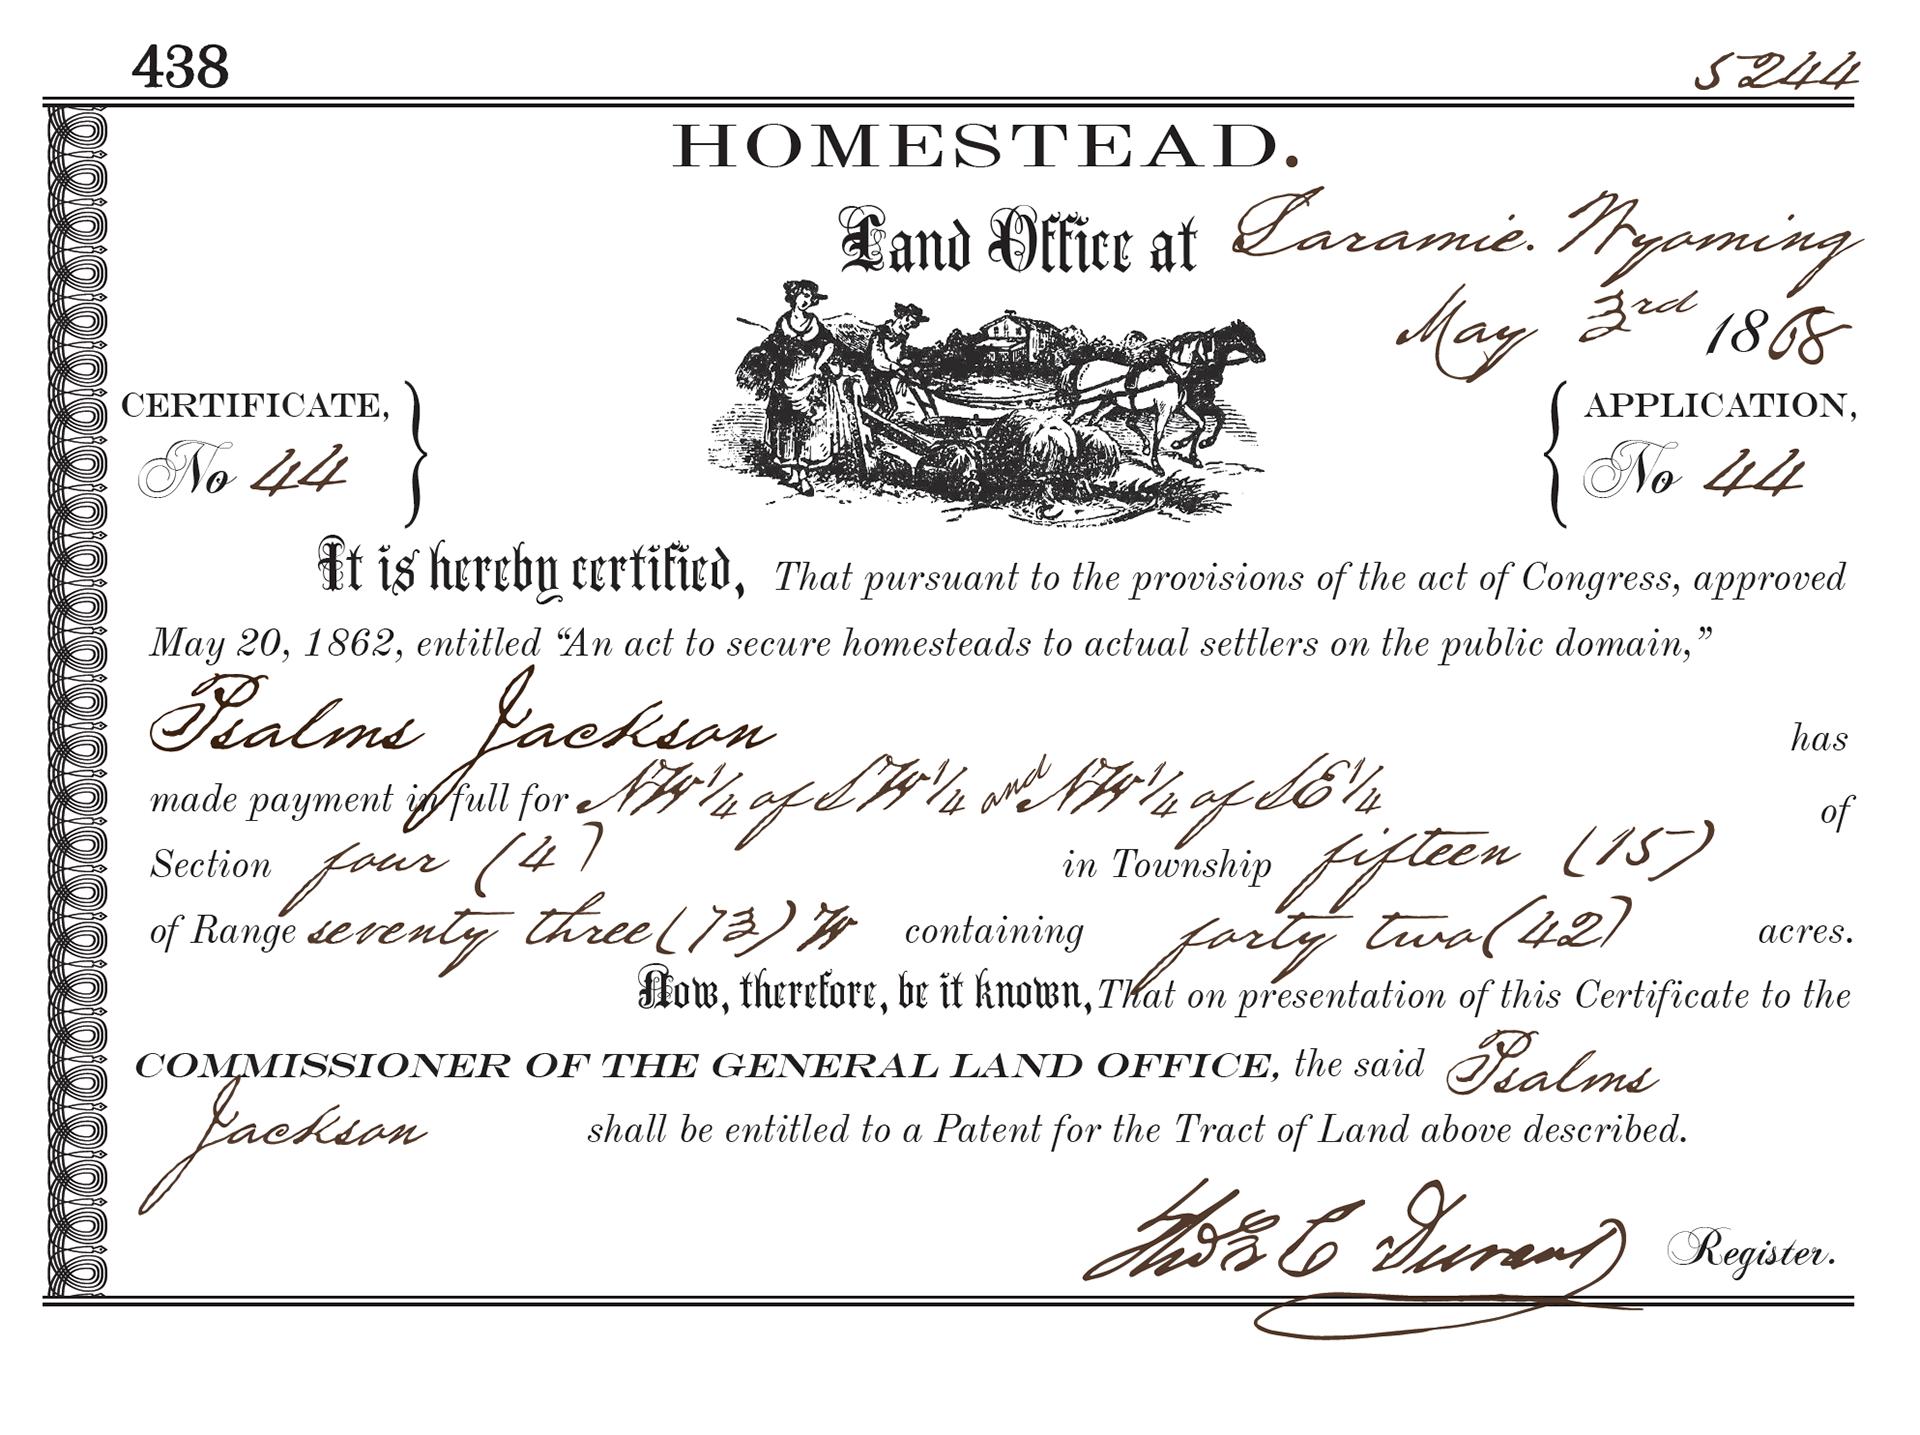 438 5244
HOMESTEAD.
Land Office at Laramie. Wyoming
May 3rd 1868
CERTIFICATE, APPLICATION,
No 44 No 44
It is hereby certified, That pursuant to the provisions of the act of Congress, approved
May 20, 1862, entitled “An act to secure homesteads to actual settlers on the public domain,”
Psalms Jackson has
made payment in full for NW 1/4 of SW 1/4 and NW 1/4 of SE 1/4 of
Section four (4) in Township fifteen (15)
of Range seventy three (73) W containing forty two (42) acres.
Now, therefore, be it known, That on presentation of this Certificate to the
COMMISSIONER OF THE GENERAL LAND OFFICE, the said Psalms
Jackson shall be entitled to a Patent for the Tract of Land above described.
Thos C Durant Register.